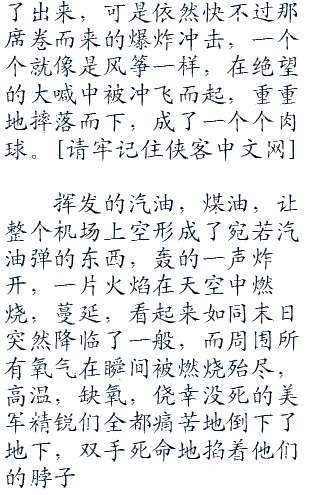 了出来，可是依然快不过那
席卷而来的爆炸冲击，一个
个就像是风筝一样，在绝望
的大喊中被冲飞而起，重重
地摔落而下，成了一个个肉
球。[请牢记住侠客中文网]
挥发的汽油，煤油，让
整个机场上空形成了宛若汽
油弹的东西，轰的一声炸
开，一片火焰在天空中燃
烧，蔓延，看起来如同末日
突然降临了一般，而周围所
有氧气在瞬间被燃烧殆尽，
高温，缺氧，侥幸没死的美
军精锐们全都痛苦地倒下了
地下，双手死命地掐着他们
的脖子